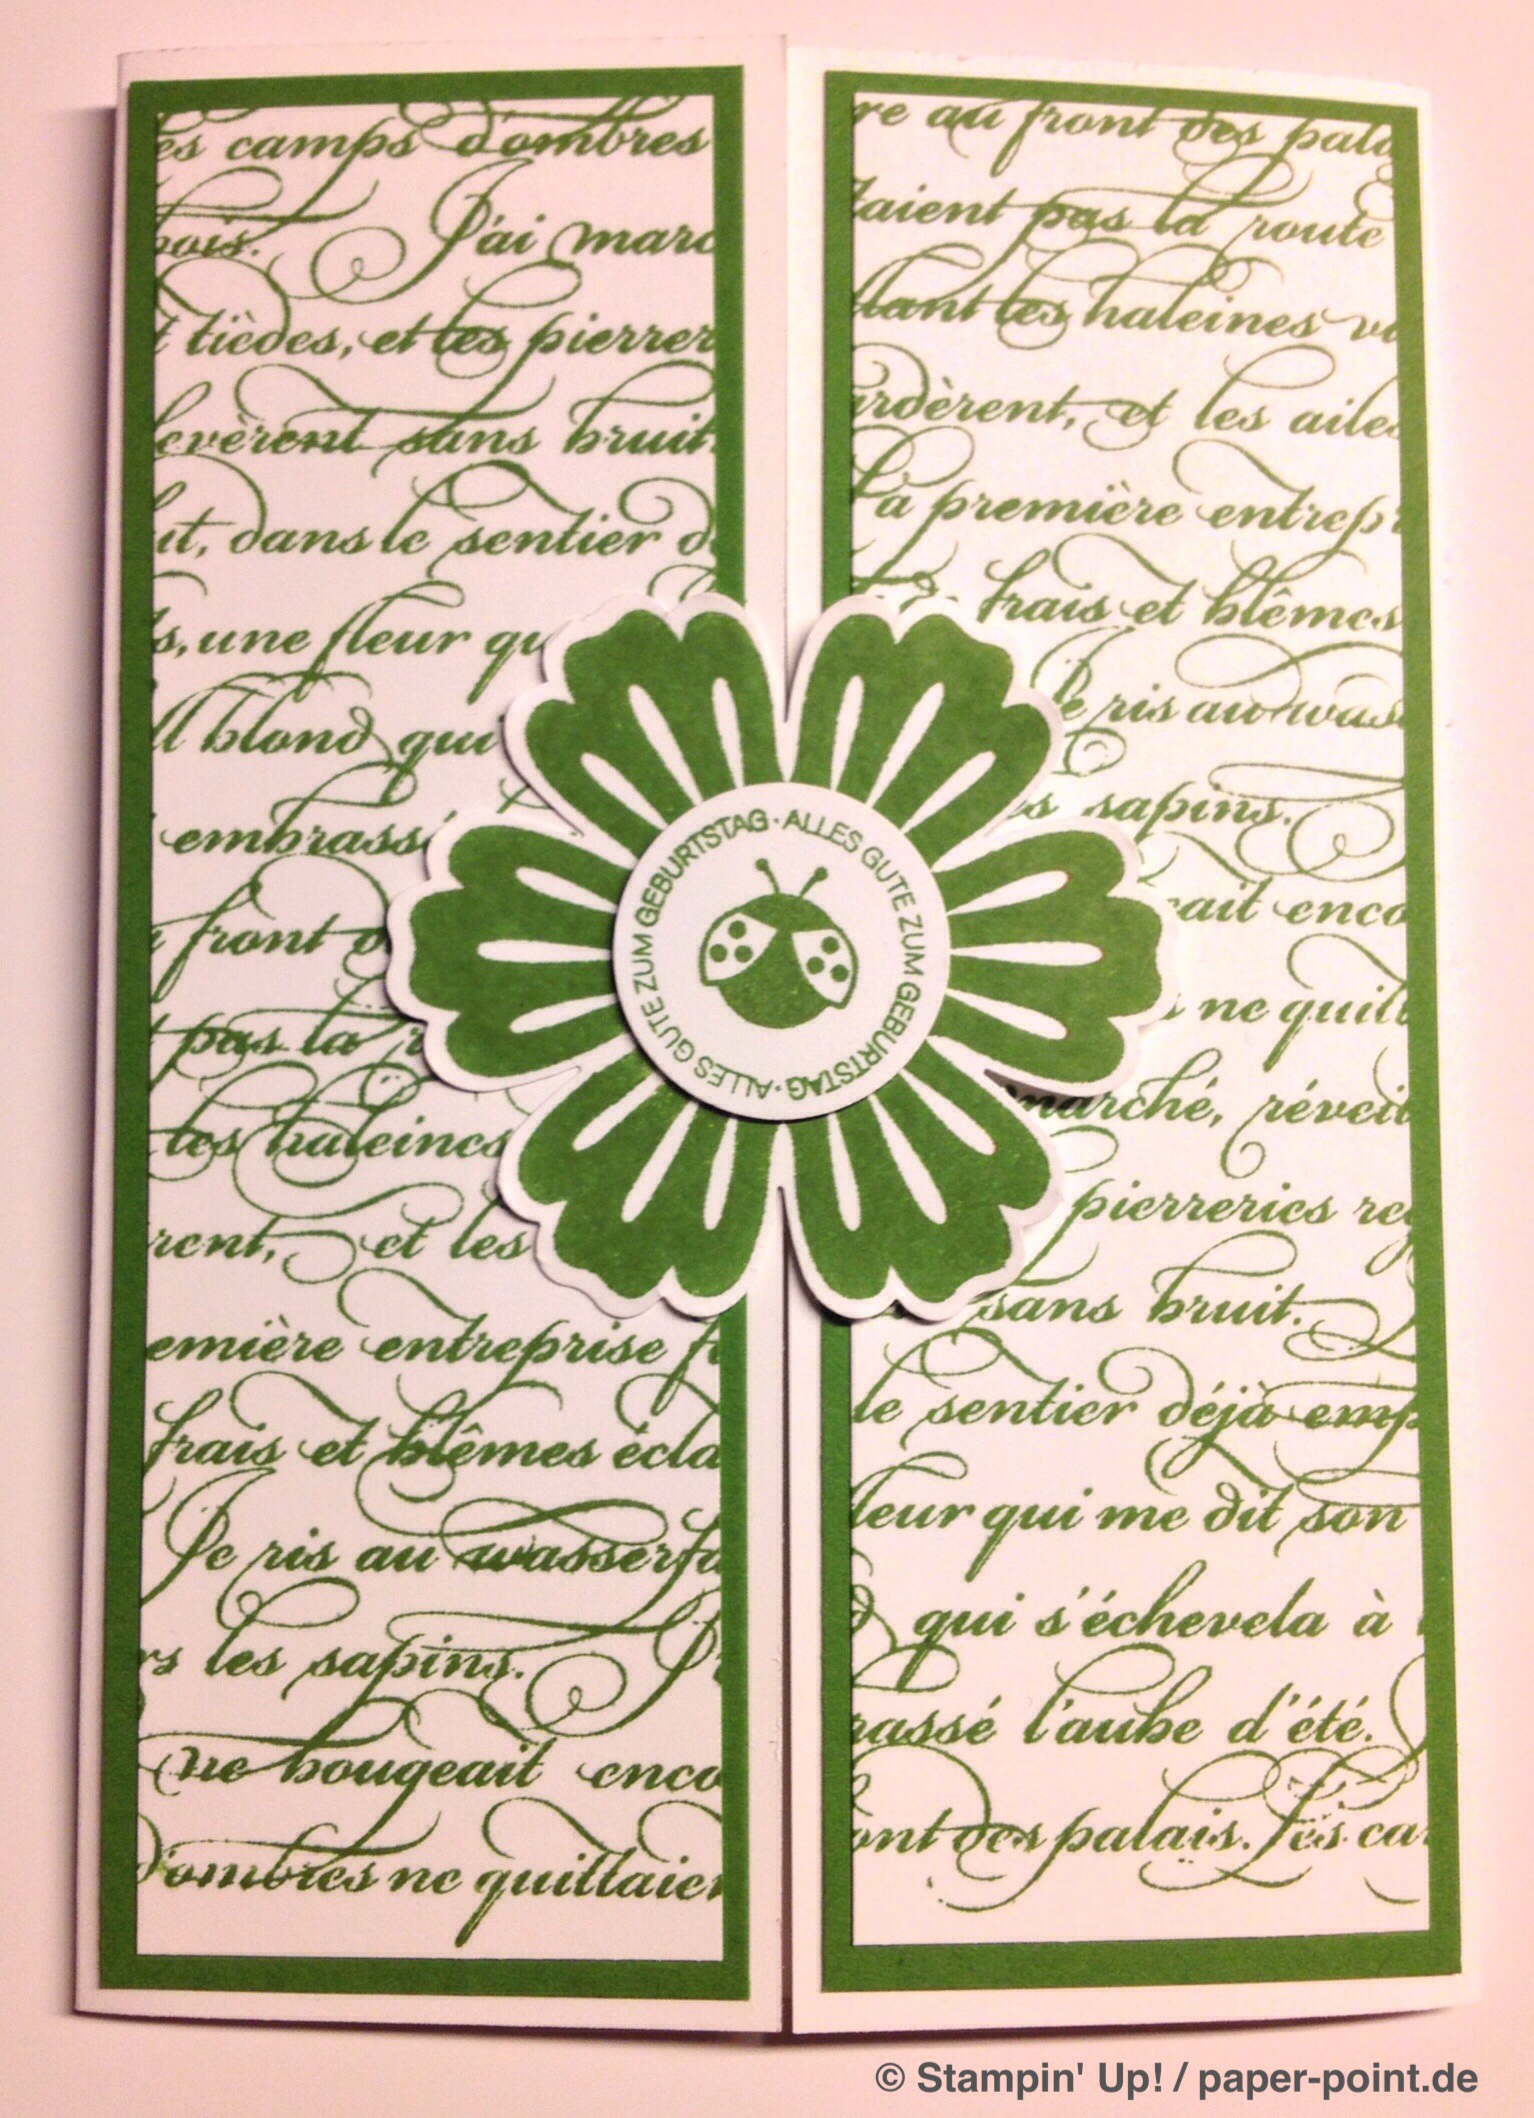 es camps d'ombres
bois. J'ai marc
t tièdes, et les pierrer
levèrent sans bruit.
ut, dans le sentier d
s, une fleur qu
ll blond qui
embrassé
front d
t pas la r
les haleines
rent, et les
emière entreprise f
frais et blêmes écla
Je ris au wasserfa
rs les sapins.
ne bougeait enco
d'ombres ne quittaien
re au front des pala
taient pas la route
llant les haleines v
ardèrent, et les ailes
La première entrepr
frais et blêmes
Je ris au wass
es sapins.
eait enco
s ne quitt
marché, réveil
pierreries reg
sans bruit.
le sentier déjà emp
leur qui me dit son
d qui s'échevela à
rassé l'aube d'été.
ont des palais. Les ca
ALLES GUTE ZUM GEBURTSTAG · ALLES GUTE ZUM GEBURTSTAG ·
© Stampin' Up! / paper-point.de